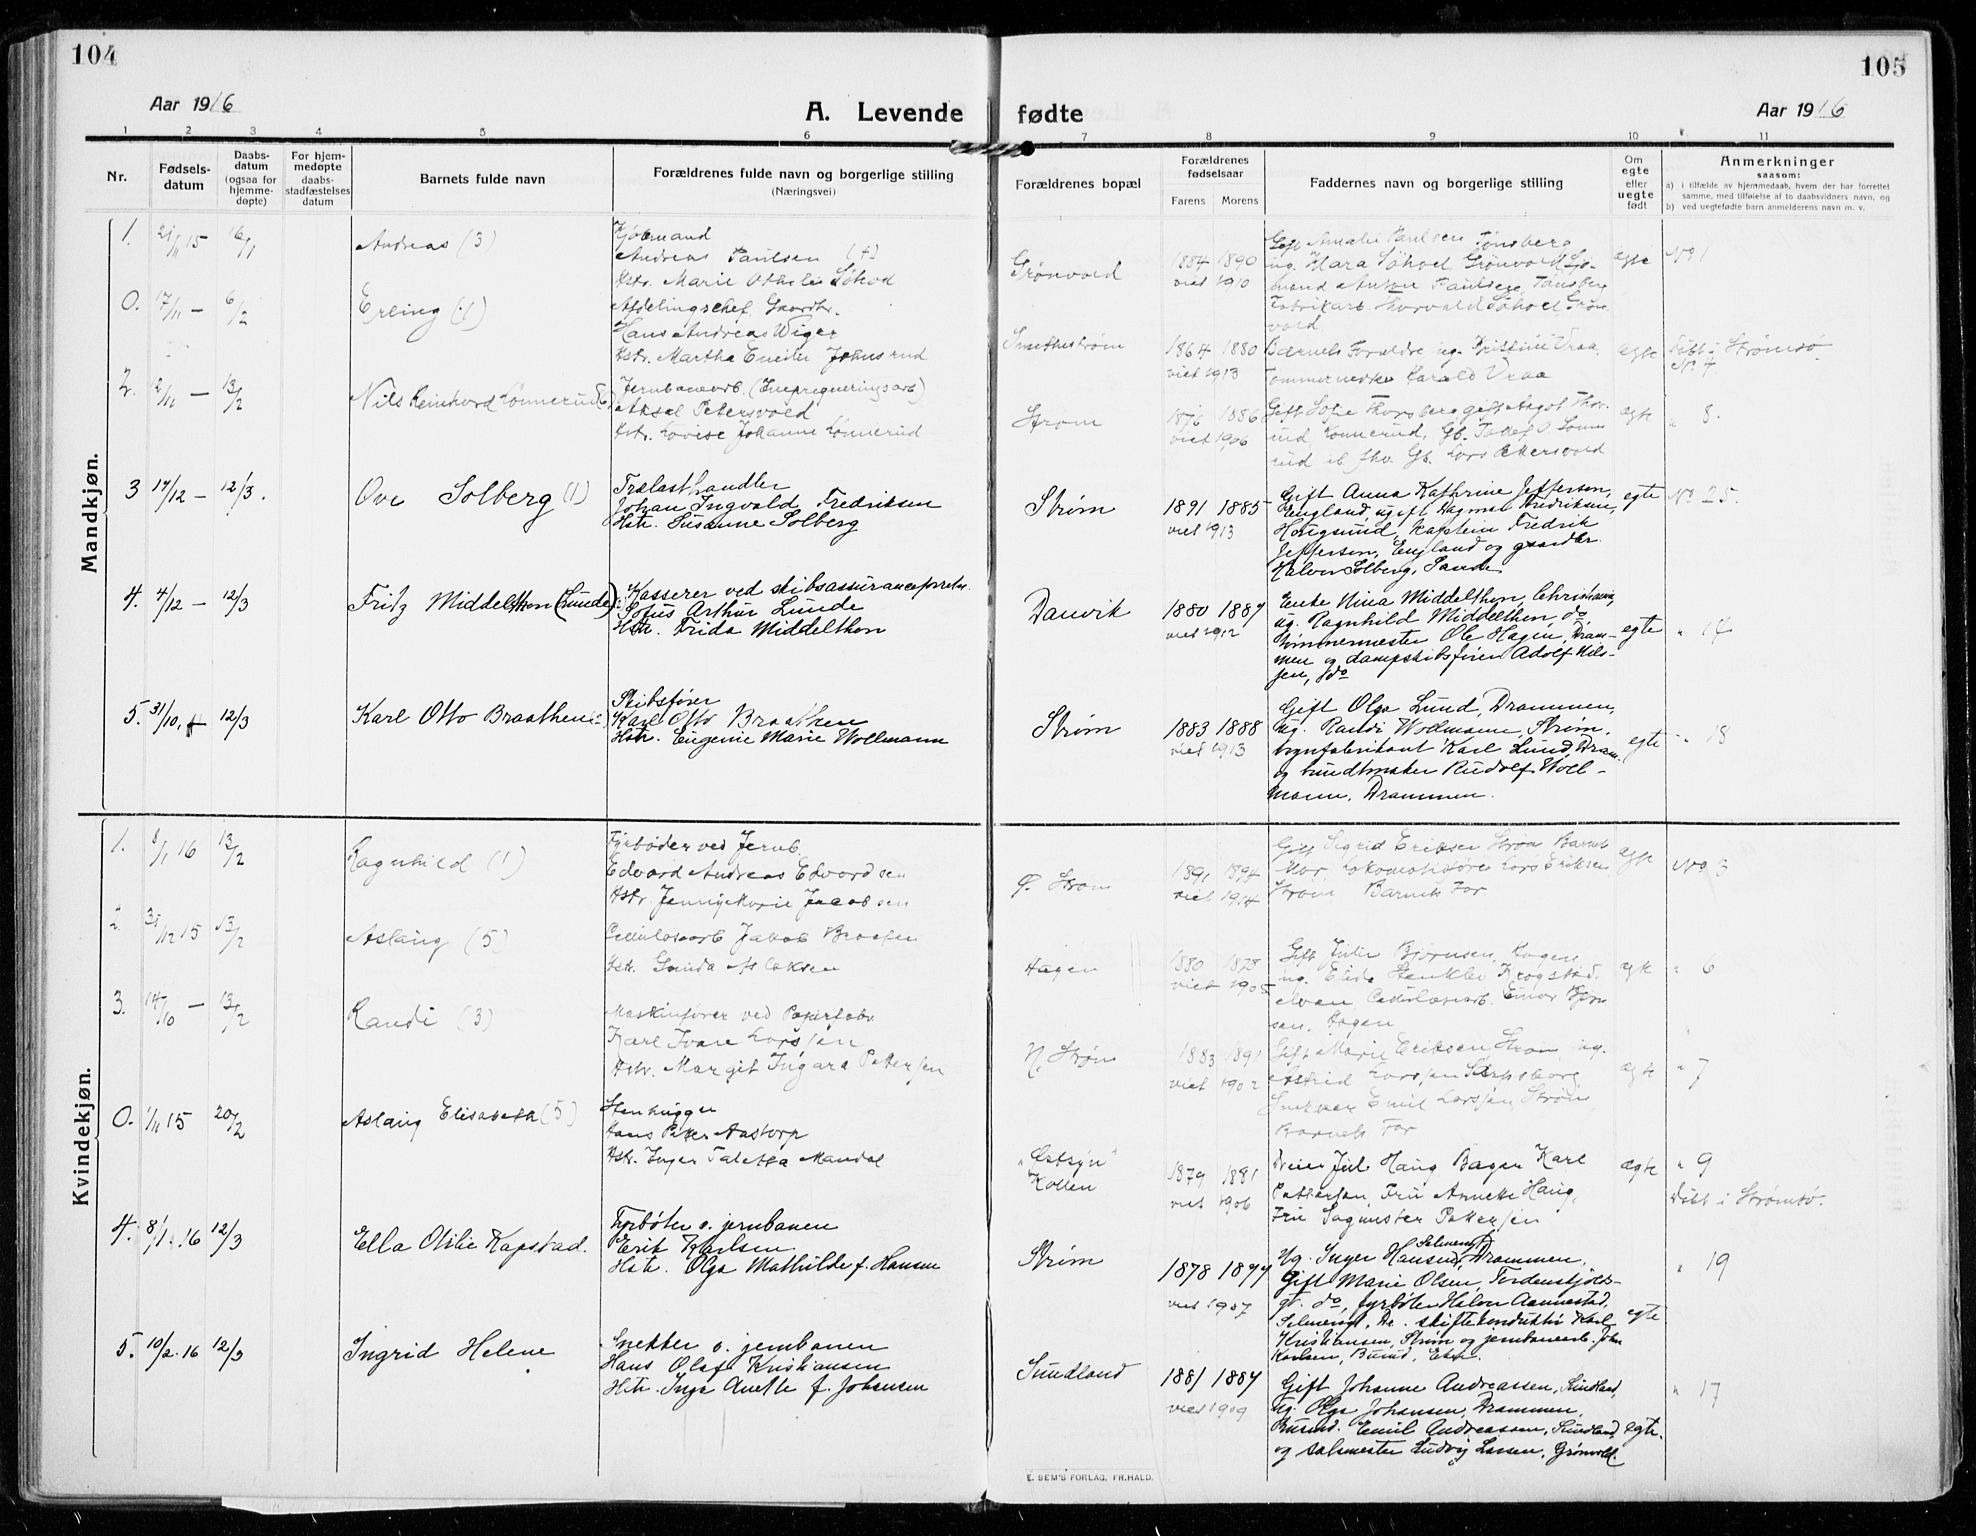 104
105
Aar 1916
A. Levende fødte
Aar 1916
1 2 3 4 5 6 7 8 9 10 11
Nr.
Fødsels-
datum
Daabs-
datum
(ogsaa for
hjemme-
døpte)
For hjem-
medøpte
daabs-
stadfæstelses
datum
Barnets fulde navn
Forældrenes fulde navn og borgerlige stilling
(Næringsvei)
Forældrenes bopæl
Forældrenes
fødselsaar
Farens Morens
Faddernes navn og borgerlige stilling
Om
egte
eller
uegte
født
Anmerkninger
saasom:
a) i tilfælde av hjemmedaab, hvem der har forrettet
samme, med tilføielse af to daabsvidners navn, og
b) ved uegtefødte barn anmelderens navn m. v.
Mandkjøn.
1. 21/11 15 16/1
Andreas (3)
Kjøbmand
Andreas Paulsen (4)
Hstr. Marie Othelie Søhod
Grønvold
1884 1890
viet 1910
Gift Amalie Paulsen Tønsberg
ug. Klara Søhoel Grønvold Sjø-
mand Anton Paulsen, Tønsberg
Fabrikarb. Thorvald Søhoel Grøn
vold
egte
No 1
0. 17/11 — 6/2
Erling (1)
Afdelingschef, Gaardbr.
Hans Andreas Wiger
Hstr. Martha Emilie Johnsrud
Smithestrøm
1864 1880
viet 1913
Barnets Forældre ug. Kristine Vraa
Tømmermerker Harald Vraa
egte
Døbt i Strømsø
No 4
2. 12/11 — 13/2
Nils Reinhard Lønnerud
Jernbanearb. (Impregneringsarb)
Aksel Petersvold
Hstr. Lovise Johanne Lønnerud
Strøm
1886
viet 1906
Gift Sofie Thorsberg gift Aagot Thor-
rud, Konnerud, Gb.
Gb. Lars Pettersvold
egte
" 8.
3 17/12 — 12/3.
Ove Solberg (1)
Trælasthandler
Johan Ingvald Fredriksen
Hstr. Susanne Solberg
Strøm
1891 1885
viet 1913
Gift Anna Kathrine Jeffersen,
England ugift Dagmar Fredriksen,
Hougsund, Kaptein Fredrik
Jeffersen, England og gaardbr.
Halvor Solberg, Sande
egte
No 25.
4. 4/12 — 12/3
Fritz Middelthon (Lunde)
Kasserer ved skibsassuranceforretn.
Sofus Arthur Lunde
Hstr. Frida Middelthon
Danvik
1880 1887
viet 1912
Enke Nina Middelthon, Christiania,
ug. Ragnhild Middelthon, do,
tømmermester Ole Hagen, Dram-
men og dampskibsfører Adolf Nils-
sen, do
egte
" 14
5. 31/10. 12/3
Karl Otto Braathen
Skibsfører
Karl Otto Braathen
Hstr. Eugenie Marie Wollmann
Strøm
1883 1888
viet 1913
Gift Olga Lund, Drammen,
ug. Randi Wollmann, Strøm,
Karl Lund, Dram.
og bundtmaker Rudolf Woll-
mann, Drammen.
egte
" 18
Kvindekjøn.
1. 8/1 16 13/2
Ragnhild (1)
Fyrbøder ved Jernb
Edvard Andreas Edvardsen
Hstr. Jenny Marie Jacobsen
Ø. Strøm
1891 1894
viet 1914
Gift Sigrid Eriksen Strøm Barnets
Mor, Lokomotivfører Lars Eriksen
Strøm Barnets Far
egte
No 3
2. 31/12 15 13/2
Aslaug (5)
Cellulosearb Jakob Braaten
Hstr. Gunda Aslaksen
Hagen
1880 1878
viet 1905
Gift Julie Bjørnsen, Hagen
ug. Elida Stenkler Krogstad.
Cellulosearb. Einar Bjørn
sen, Hagen
egte
" 6
3. 14/10 — 13/2
Randi (3)
Maskinfører ved Papirfabr
Karl Ivar Larssen
Hstr. Margit Ingara Pettersen
N. Strøm
1883 1891
viet 1902
Gift Marie Eriksen Strøm, ug.
Astrid Larssen Sarpsborg
Snekker Emil Larssen, Strøm,
Barnets Far
egte
" 7
0. 1/11 15 20/2
Aslaug Elisabeth (5)
Stenhugger
Hans Petter Aastorp
Hstr. Inger Taletta Mandal
"Østsyn"
Kollen
1879 1881
viet 1906
Dreier Jul. Haug Bager Karl
Pettersen Fru Annette Haug,
Fru Pettersen
egte
" 9
Døbt i Strømsø.
4. 8/1. 16 12/3
Ella Otilie Kopstad.
Fyrbøter v. jernbanen
Erik Karlsen
Hstr. Olga Mathilde f. Hansen
Strøm
1878 1877
viet 1907
Ug. Inger Hansen, Selmersgt. Drammen,
Gift Marie Olsen, Tordenskjolds-
gt. do, fyrbøter Halvor Aamestad,
Selmersgt. Do. skiftekonduktør Karl
Kristiansen, Strøm og jernbanearb. John
Karlsen, Buind, Eker
egte
" 19
5. 10/2. 16 12/3
Ingrid Helene
Snekker v. jernbanen
Hans Olaf Kristiansen
Hstr. Inga Anette f. Johansen
Sundland
1881 1887
viet 1909
Gift Johanne Andreassen, Sundland,
ug. Olga Johansen, Drammen,
Emil Andreassen, Sundland
og salsmester Ludvig Larsen, Grønvold.
egte.
" 17
E. SEM'S FORLAG, FR.HALD.